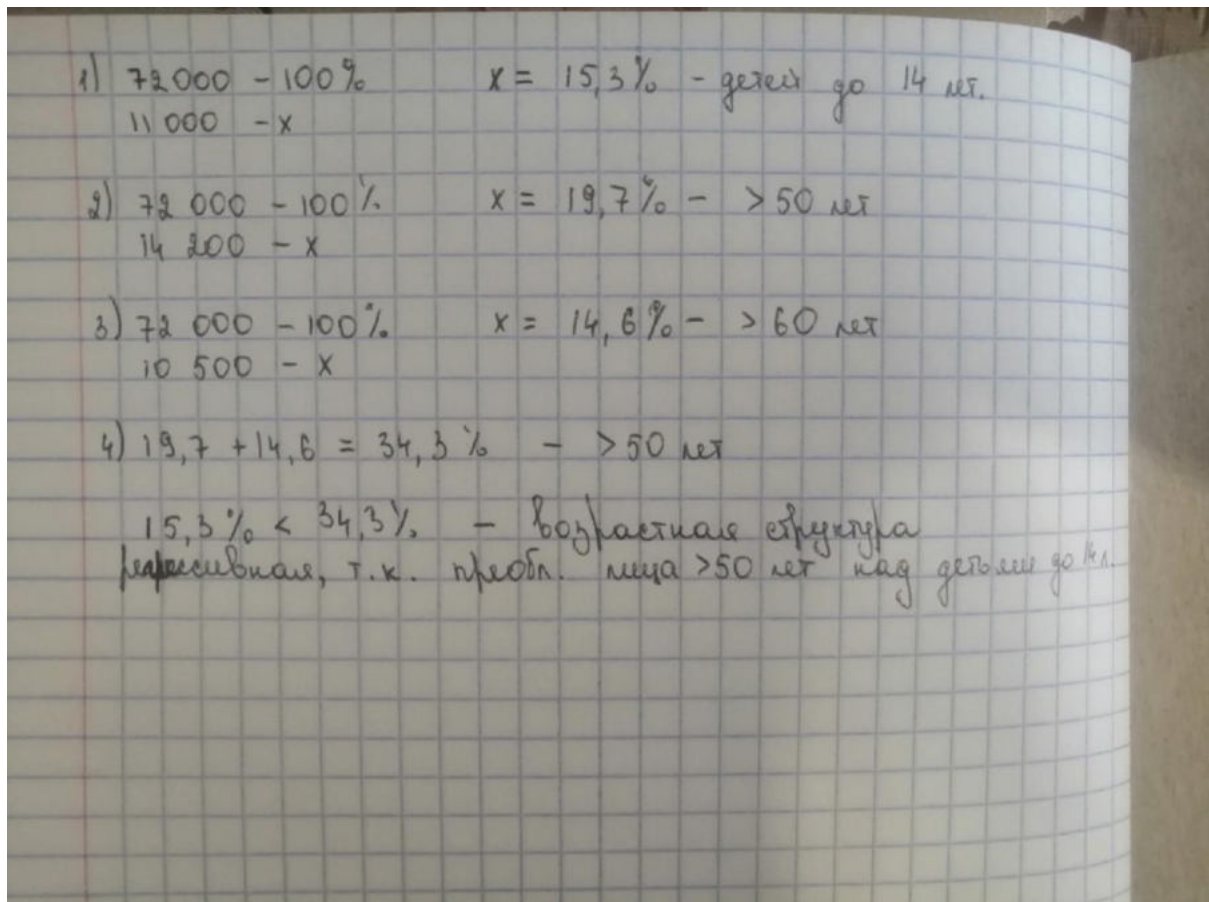 1) 72000 - 100% x = 15,3% - детей до 14 лет.
11 000 - x
2) 72 000 - 100% x = 19,7% - > 50 лет
14 200 - x
3) 72 000 - 100% x = 14,6% - > 60 лет
10 500 - x
4) 19,7 + 14,6 = 34,3 % - > 50 лет
15,3% < 34,3% - возрастная структура
регрессивная, т.к. преобл. лица >50 лет над детьми до 14 л.